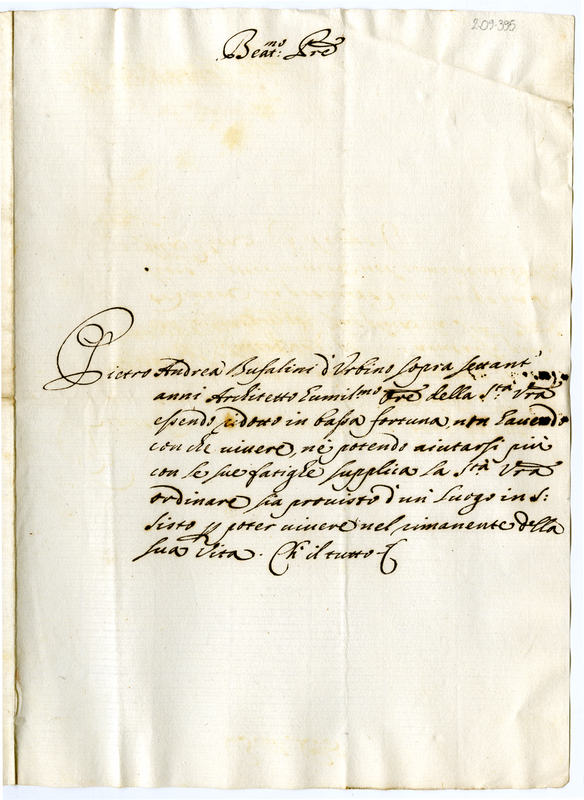 2-09-395
Beat:mo Pre
Pietro Andrea Bufalini d'Urbino sopra settant'
anni Architetto humil:mo Ore della S:tà Vra
essendo ridotto in bassa fortuna, non hauendo
con che uiuere, ne potendo aiutarsi più
con le sue fatighe supplica la S:tà Vra
ordinare sia prouisto d'un luogo in S:
Sisto p poter uiuere nel rimanente della
sua Vita. Ch il tutto